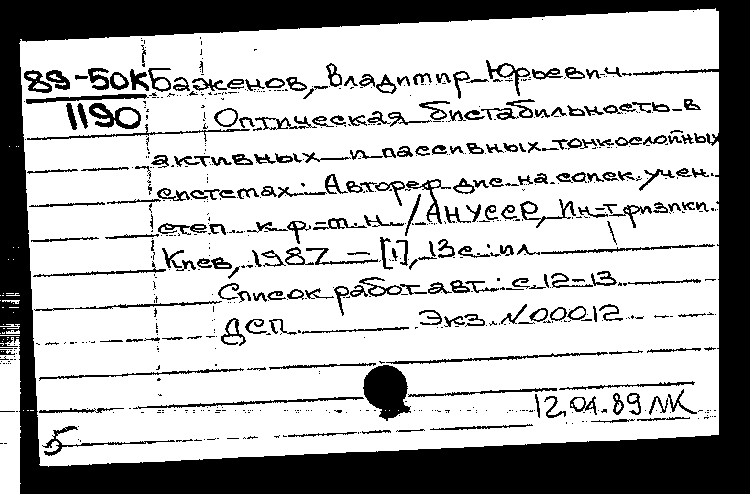 89-50К Баженов, Владимир Юрьевич
1190 Оптическая бистабильность в
активных и пассивных тонкослойных
системах: Автореф дис. на соиск. учен.
степ. к.ф.-м.н. / АН УССР, Ин-т физики.
Киев, 1987 – [1], 13 с.: ил
Список работ авт.: с. 12-13
ДСП Экз. N 00012
12.04.89 ЛК
5